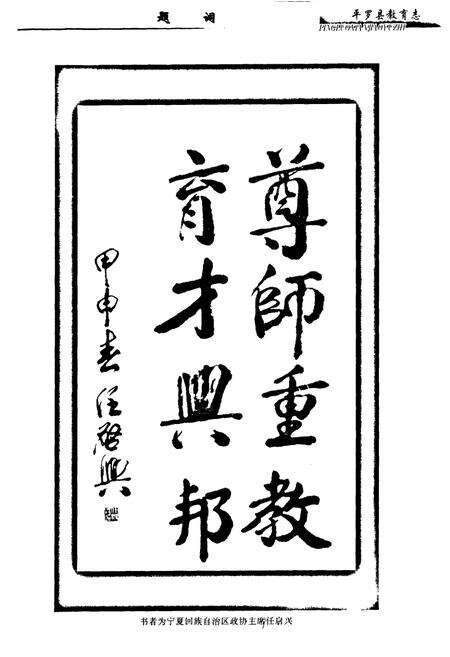 题 词
平罗县教育志
PINGLUOXIANJIAOYUZHI
尊師重教
育才興邦
甲申春 任啓興
书者为宁夏回族自治区政协主席任启兴